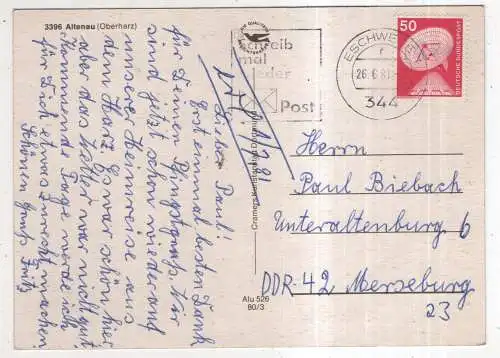 3396 Altenau (Oberharz)
Lieber Paul!
Erst einmal besten Dank
für Deinen Pfingstgruß. Wir
sind jetzt schon wieder auf
unserer Heimreise aus
dem Harz. Es war schön hier
aber das Wetter war nicht gut
kommende Tage werde ich
für Dich etwas zurecht machen.
Schönen Gruß Fritz
Schreib
mal
wieder
Post
ESCHWEGE
26.6.81
344
50
DEUTSCHE BUNDESPOST
Cramers Kunstanstalt Dortmund
Alu 526
80/3
Herrn
Paul Biebach
Unteraltenburg 6
DDR-42 Merseburg
23